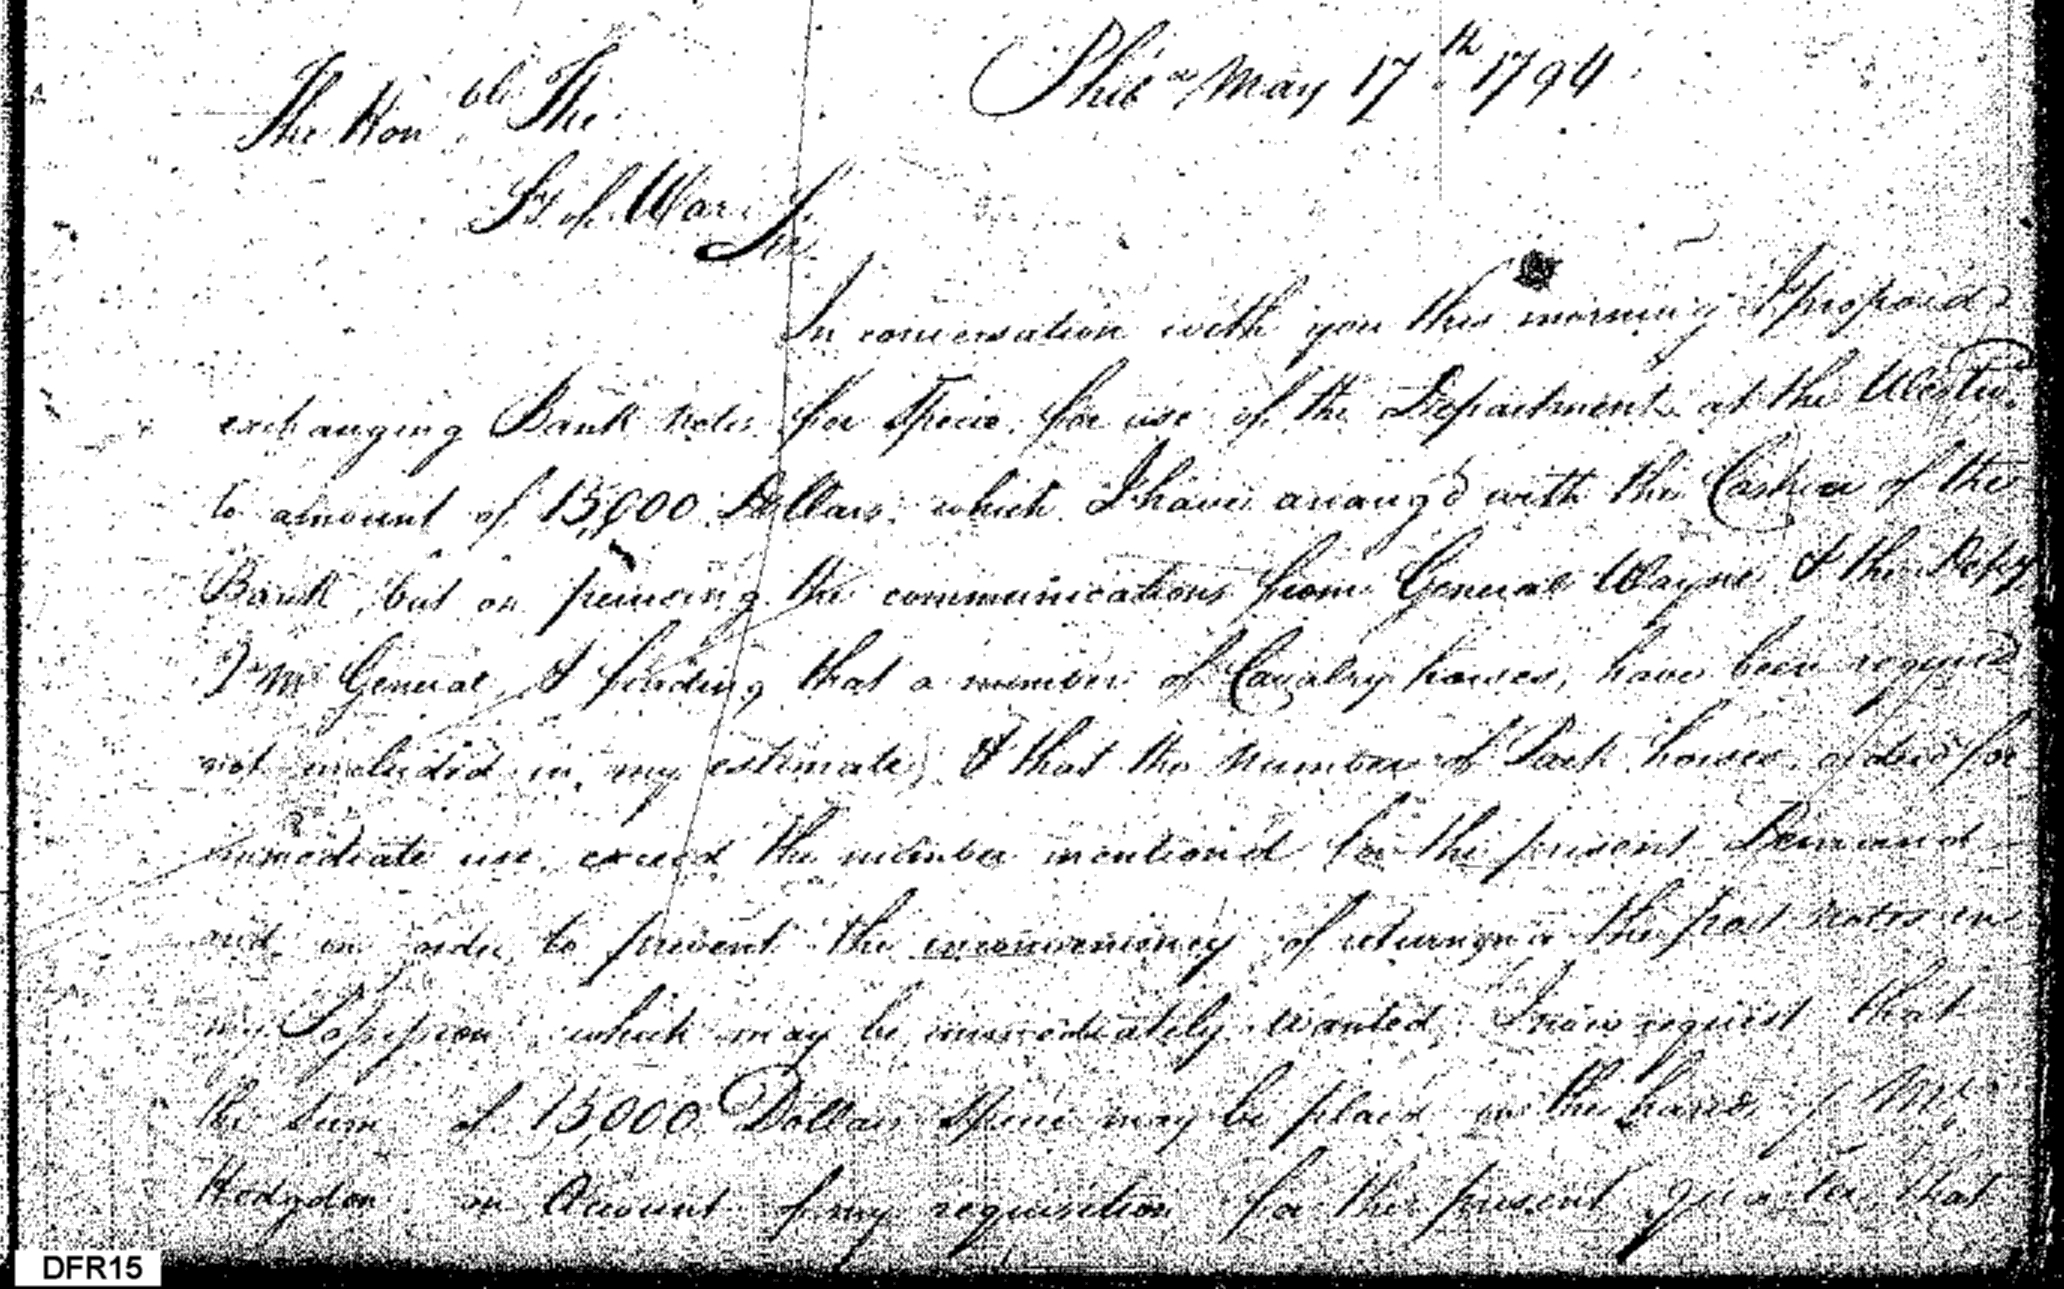 Phila May 17th 1794
The Honble The
Sy of War Sir
In conversation with you this morning I propos'd
exchanging Bank notes for Specie for use of the Department at the Westwd
to amount of 15,000 Dollars which I have arang'd with the Cashier of the
Bank, but on peruseing the communications from General Wayne & the Depy
Qr Mr General, & finding that a number of Cavalry horses, have been requir'd
not included in my estimate, & that the number of Pack horses order'd for
immediate use exceed the number mention'd for the present Demand
and in order to prevent the inconveniency of returning the post notes in
my Possession which may be immediately wanted, I now request that
the sum of 15,000 Dollars Specie may be placd in the hands of Mr
Hodgdon on Account of my requisition for the present quarter that
DFR15